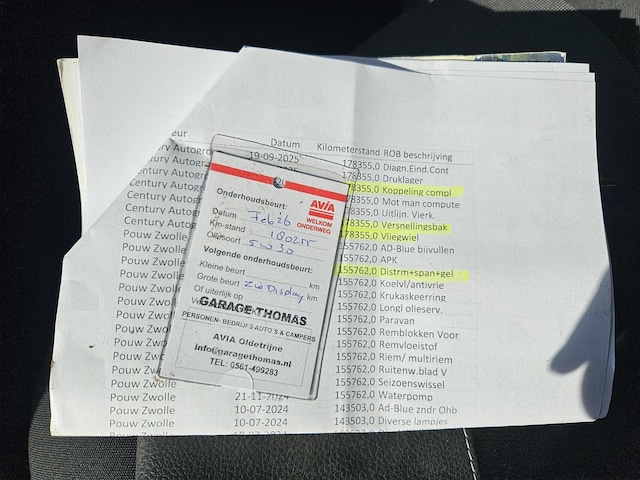 eur Datum Kilometerstand ROB beschrijving
Century Autogro 19-09-2025 178355,0 Diagn.Eind.Cont
Century Autogr 178355,0 Druklager
Century Autogr 178355,0 Koppeling compl
Century Autogr Mot man compute
Century Autog Uitlijn. Vierk.
Century Autog 178355,0 Versnellingsbak
Century Autog 178355,0 Vliegwiel
Pouw Zwolle 155762,0 AD-Blue bijvullen
Pouw Zwolle 155762,0 APK
Pouw Zwolle 155762,0 Distrm+span+gel
Pouw Zwolle 155762,0 Koelvl/antivrie
Pouw Zwolle 155762,0 Krukaskeerring
Pouw Zwolle 155762,0 Longl olieserv.
Pouw Zwolle 155762,0 Paravan
Pouw Zwolle 155762,0 Remblokken Voor
Pouw Zwolle 155762,0 Remvloeistof
Pouw Zwolle 155762,0 Riem/ multiriem
Pouw Zwolle 155762,0 Ruitenw.blad V
Pouw Zwolle 155762,0 Seizoenswissel
Pouw Zwolle 21-11-2024 155762,0 Waterpomp
Pouw Zwolle 10-07-2024 143503,0 Ad-Blue zndr Ohb
Pouw Zwolle 10-07-2024 143503,0 Diverse lampjes
AVIA
WELKOM
ONDERWEG
Onderhoudsbeurt:
Datum Feb 26
Km-stand
Oliesoort 5W30
Volgende onderhoudsbeurt:
Kleine beurt km
Grote beurt zie Display km
Of uiterlijk op
GARAGE THOMAS
PERSONEN- BEDRIJFS AUTO'S & CAMPERS
AVIA Oldetrijne
info@garagethomas.nl
TEL: 0561-499283